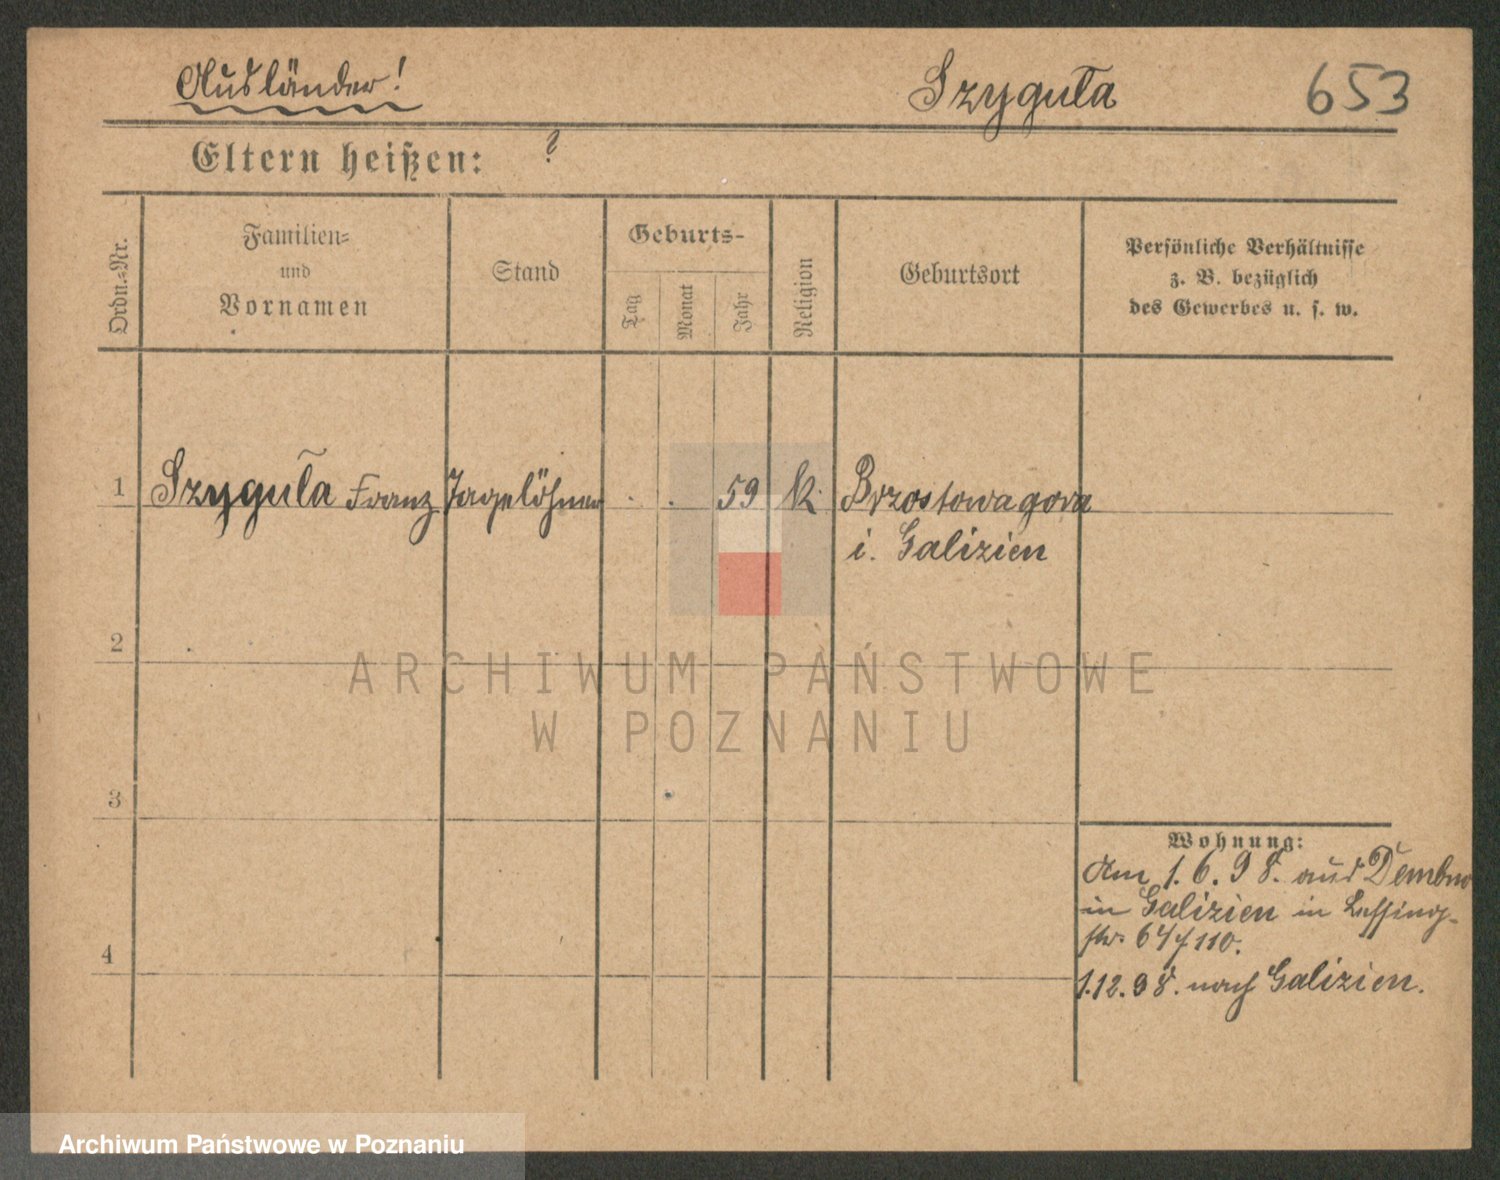 Ausländer!
Szyguła
653
Eltern heißen: ?
Ordn.-Nr.
Familien-
und
Vornamen
Stand
Geburts-
Tag
Monat
Jahr
Religion
Geburtsort
Persönliche Verhältnisse
z. B. bezüglich
des Gewerbes u. s. w.
1 Szyguła Franz Tagelöhner . . 59 k. Brzostowagora
i. Galizien
2
ARCHIWUM PAŃSTWOWE
W POZNANIU
3
Wohnung:
Am 1.6.98. aus Dembno
in Galizien in Lessing-
str. 110.
4
1.12.98. nach Galizien.
Archiwum Państwowe w Poznaniu